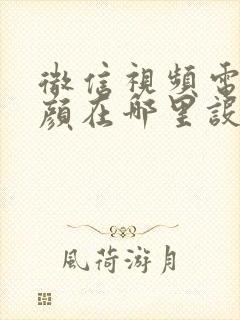 微信視頻電
顔在哪里設
風荷游月